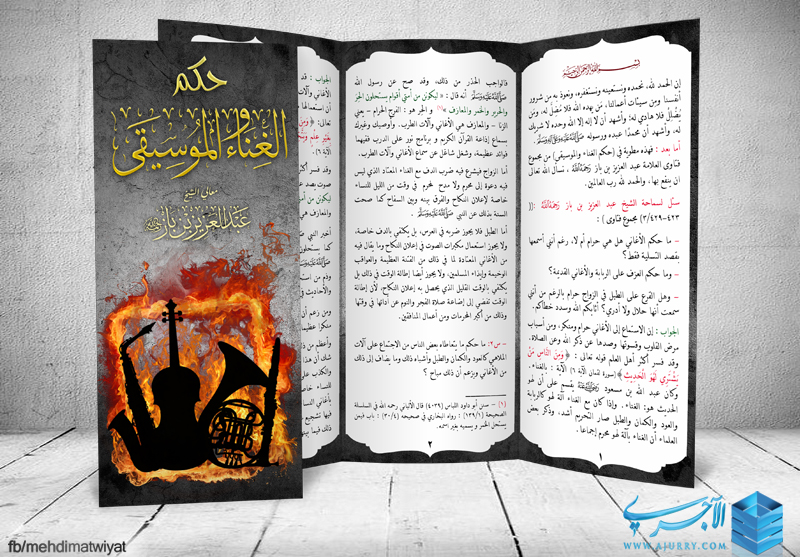 حكم
الغناء والموسيقى
معالي الشيخ
عبد العزيز بن باز
إن الحمد لله، نحمده ونستعينه ونستغفره، ونعوذ به من شرور
أنفسنا ومن سيئات أعمالنا، من يهده الله فلا مضل له، ومن
يضلل فلا هادي له، وأشهد أن لا إله إلا الله وحده لا شريك
له، وأشهد أن محمدًا عبده ورسوله ﷺ.
أما بعد : فهذه مطوية في (حكم الغناء والموسيقى) من مجموع
فتاوى العلامة عبد العزيز بن باز رحمه الله ، نسأل الله تعالى
أن ينفع بها، والحمد لله رب العالمين.
سئل لسماحة الشيخ عبد العزيز بن باز رحمه الله :((
٣/٤٢٩-٤٢٣) مجموع فتاوى) :
– ما حكم الأغاني هل هي حرام أم لا، رغم أنني أسمعها
بقصد التسلية فقط؟
– وما حكم العزف على الربابة والأغاني القديمة؟
– وهل القرع على الطبل في الزواج حرام بالرغم من أنني
سمعت أنها حلال ولا أدري؟ أثابكم الله وسدد خطاكم.
الجواب : إن الاستماع إلى الأغاني حرام ومنكر، ومن أسباب
مرض القلوب وقسوتها وصدها عن ذكر الله وعن الصلاة.
وقد فسر أكثر أهل العلم قوله تعالى : ﴿ وَمِنَ النَّاسِ مَنْ
يَشْتَرِي لَهْوَ الْحَدِيثِ ﴾ [سورة لقمان الآية ٦] الآية : بالغناء.
وكان عبد الله بن مسعود رضي الله عنه يقسم على أن لهو
الحديث هو: الغناء. وإذا كان مع الغناء آلة لهو كالربابة
والعود والكمان والطبل صار التحريم أشد، وذكر بعض
العلماء أن الغناء بآلة لهو محرم إجماعا.
١
فالواجب الحذر من ذلك، وقد صح عن رسول الله
ﷺ أنه قال : « ليكونن من أمتي أقوام يستحلون الحر
والحرير والخمر والمعازف »(١) و الحر هو : الفرج الحرام – يعني
الزنا – والمعازف هي الأغاني وآلات الطرب. وأوصيك وغيرك
بسماع إذاعة القرآن الكريم و برنامج نور على الدرب ففيهما
فوائد عظيمة، وشغل شاغل عن سماع الأغاني وآلات الطرب.
أما الزواج فيشرع فيه ضرب الدف مع الغناء المعتاد الذي ليس
فيه دعوة إلى محرم ولا مدح لمحرم في وقت من الليل للنساء
خاصة لإعلان النكاح والفرق بينه وبين السفاح كما صحت
السنة بذلك عن النبي ﷺ.
أما الطبل فلا يجوز ضربه في العرس، بل يكتفى بالدف خاصة،
ولا يجوز استعمال مكبرات الصوت في إعلان النكاح وما يقال فيه
من الأغاني المعتادة لما في ذلك من الفتنة العظيمة والعواقب
الوخيمة وإيذاء المسلمين، ولا يجوز أيضا إطالة الوقت في ذلك بل
يكتفى بالوقت القليل الذي يحصل به إعلان النكاح، لأن إطالة
الوقت تفضي إلى إضاعة صلاة الفجر والنوم عن أدائها في وقتها
وذلك من أكبر المحرمات ومن أعمال المنافقين.
– س٢: ما حكم ما يتعاطاه بعض الناس من الاجتماع على آلات
الملاهي كالعود والكمان والطبل وأشباه ذلك وما يضاف إلى ذلك
من الأغاني ويزعم أن ذلك مباح ؟
(١) – سنن أبو داود اللباس (٤٠٣٩) قال الألباني رحمه الله في السلسلة
الصحيحة (١/١٣٩) : رواه البخاري في صحيحه (٤/٣٠) : باب فيمن
يستحل الخمر و يسميه بغير اسمه.
٢
fb/mehdimatwiyat
الآجري
WWW.AJURRY.COM